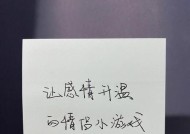 让感情升温
的情侣小游戏